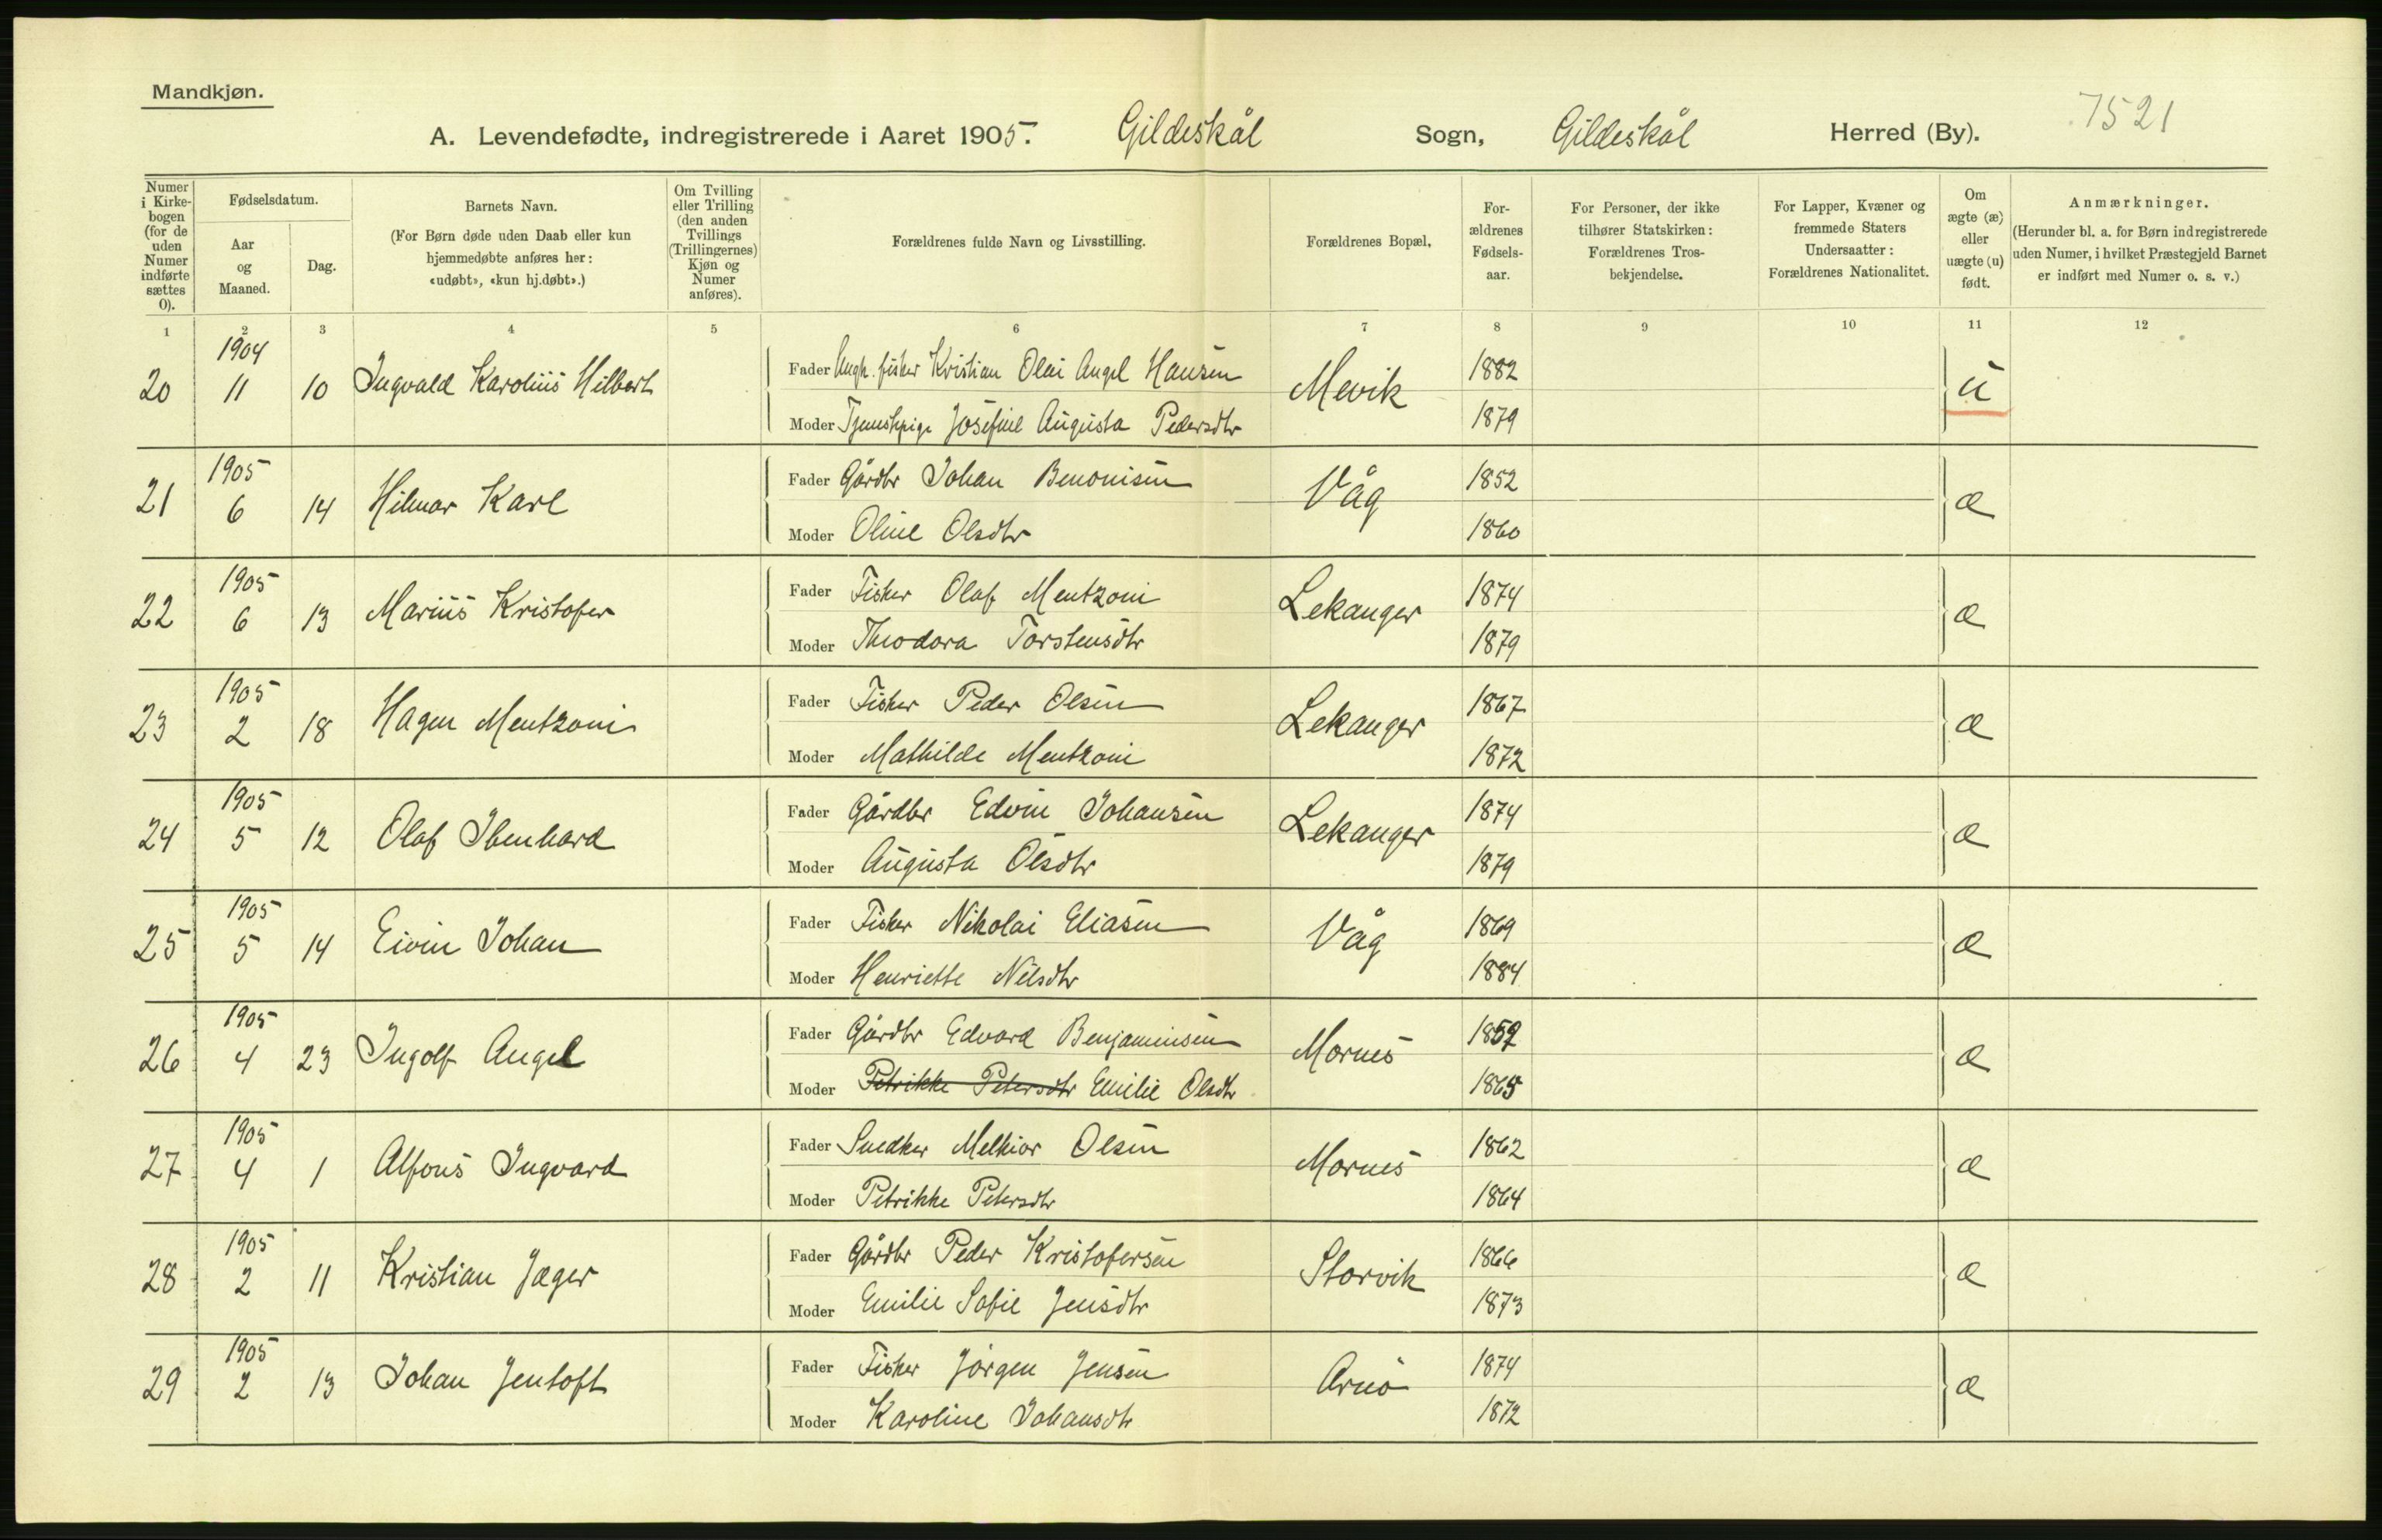 Mandkjøn.
7521
A. Levendefødte, indregistrerede i Aaret 1905. Gildeskål Sogn, Gildeskål Herred (By).
Numer i Kirkebogen (for de uden Numer indførte sættes 0).
Fødselsdatum.
Aar og Maaned.
Dag.
Barnets Navn.
(For Børn døde uden Daab eller kun hjemmedøbte anføres her: «udøbt», «kun hj.døbt».)
Om Tvilling eller Trilling (den anden Tvillings (Trillingernes) Kjøn og Numer anføres).
Forældrenes fulde Navn og Livsstilling.
Forældrenes Bopæl,
Forældrenes Fødselsaar.
For Personer, der ikke tilhører Statskirken: Forældrenes Trosbekjendelse.
For Lapper, Kvæner og fremmede Staters Undersaatter: Forældrenes Nationalitet.
Om ægte (æ) eller uægte (u) født.
Anmærkninger.
(Herunder bl. a. for Børn indregistrerede uden Numer, i hvilket Præstegjeld Barnet er indført med Numer o. s. v.)
1 2 3 4 5 6 7 8 9 10 11 12
20 1904 11 10 Ingvald Karolius Hilbert Fader Ungk. fisker Kristian Olai Angel Hansen Mevik 1882 u
Moder Tjenestepige Josefine Augusta Pedersdtr 1879
21 1905 6 14 Hilmar Karl Fader Gårdbr Johan Benonisen Våg 1852 æ
Moder Oline Olsdtr 1860
22 1905 6 13 Marius Kristofer Fader Fisker Olaf Mentzoni Lekanger 1874 æ
Moder Theodora Torstensdtr 1879
23 1905 2 18 Hagen Mentzoni Fader Fisker Peder Olsen Lekanger 1867 æ
Moder Mathilde Mentzoni 1872
24 1905 5 12 Olaf Ibenhard Fader Gårdbr Edvin Johansen Lekanger 1874 æ
Moder Augusta Olsdtr 1879
25 1905 5 14 Eivin Johan Fader Fisker Nikolai Eliasen Våg 1869 æ
Moder Henriette Nilsdtr 1884
26 1905 4 23 Ingolf Angel Fader Gårdbr Edvard Benjaminsen Mornes 1859 æ
Moder Petrikke Petersdtr Emilie Olsdtr 1865
27 1905 4 1 Alfons Ingvard Fader Snedker Melkior Olsen Mornes 1862 æ
Moder Petrikke Petersdtr 1864
28 1905 2 11 Kristian Jæger Fader Gårdbr Peder Kristofersen Storvik 1866 æ
Moder Emilie Sofie Jensdtr 1873
29 1905 2 13 Johan Jentoft Fader Fisker Jörgen Jensen Arnö 1874 æ
Moder Karoline Johansdtr 1872